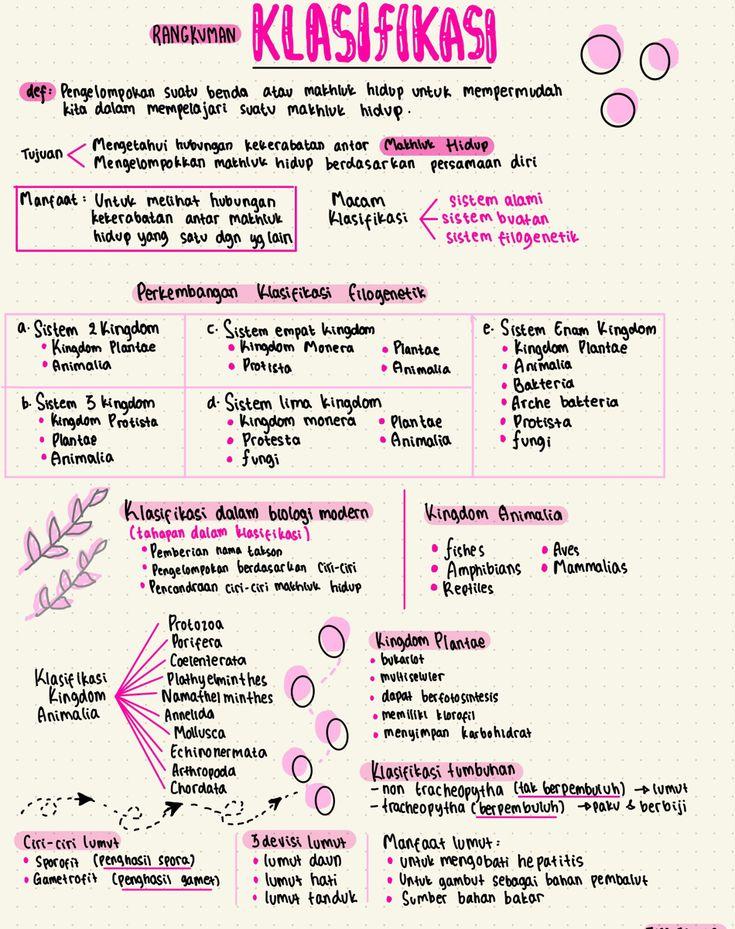 RANGKUMAN KLASIFIKASI
def: Pengelompokan suatu benda atau makhluk hidup untuk mempermudah
kita dalam mempelajari suatu makhluk hidup.
Tujuan
Mengetahui hubungan kekerabatan antar Makhluk Hidup
Mengelompokkan makhluk hidup berdasarkan persamaan diri
Manfaat: Untuk melihat hubungan
kekerabatan antar makhluk
hidup yang satu dgn yg lain
Macam
Klasifikasi
sistem alami
sistem buatan
sistem filogenetik
Perkembangan Klasifikasi filogenetik
a. Sistem 2 Kingdom
• Kingdom Plantae
• Animalia
b. Sistem 3 kingdom
• Kingdom Protista
• Plantae
• Animalia
c. Sistem empat kingdom
• Kingdom Monera
• Protista
• Plantae
• Animalia
d. Sistem lima kingdom
• Kingdom monera
• Protesta
• fungi
• Plantae
• Animalia
e. Sistem Enam Kingdom
• Kingdom Plantae
• Animalia
• Bakteria
• Arche bakteria
• Protista
• fungi
Klasifikasi dalam biologi modern
(tahapan dalam klasifikasi)
• Pemberian nama takson
• Pengelompokan berdasarkan ciri-ciri
• Pencandraan ciri-ciri makhluk hidup
Kingdom Animalia
• fishes
• Amphibians
• Reptiles
• Aves
• Mammalias
Klasifikasi
Kingdom
Animalia
Protozoa
Porifera
Coelenterata
Plathyelminthes
Namathelminthes
Annelida
Mollusca
Echinonermata
Arthropoda
Chordata
Kingdom Plantae
• bukariot
• multiseluler
• dapat berfotosintesis
• memiliki klorofil
• menyimpan karbohidrat
Klasifikasi tumbuhan
- non tracheopytha (tak berpembuluh) → lumut
- tracheopytha (berpembuluh) → paku & berbiji
Ciri-ciri lumut
• Sporofit (penghasil spora)
• Gametrofit (penghasil gamet)
3 devisi lumut
• lumut daun
• lumut hati
• lumut tanduk
Manfaat lumut:
• untuk mengobati hepatitis
• Untuk gambut sebagai bahan pembalut
• Sumber bahan bakar